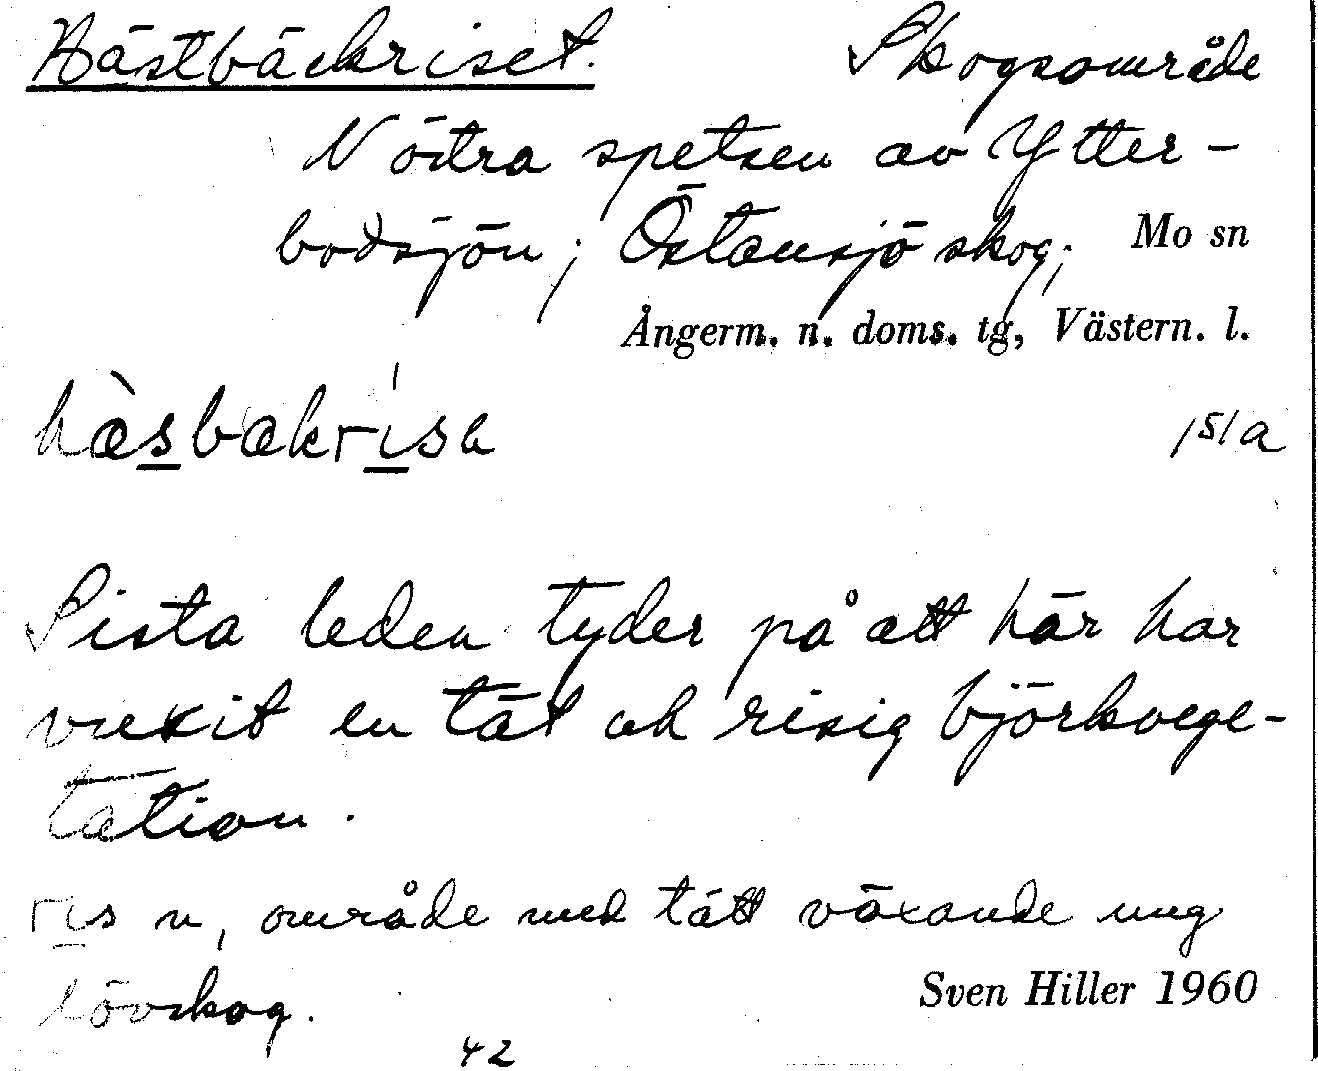 Hästbäckriset. Skogsområde
Nöstra spetsen av Ytter-
bodsjön; Östansjö skog; Mo sn
Ångerm. n. doms. tg, Västern. l.
hàsbækrisa 151a
Sista leden tyder på att här har
vuxit en tät och risig björkvege-
tation.
ris n, område med tätt växande ung
lövskog.
Sven Hiller 1960
42